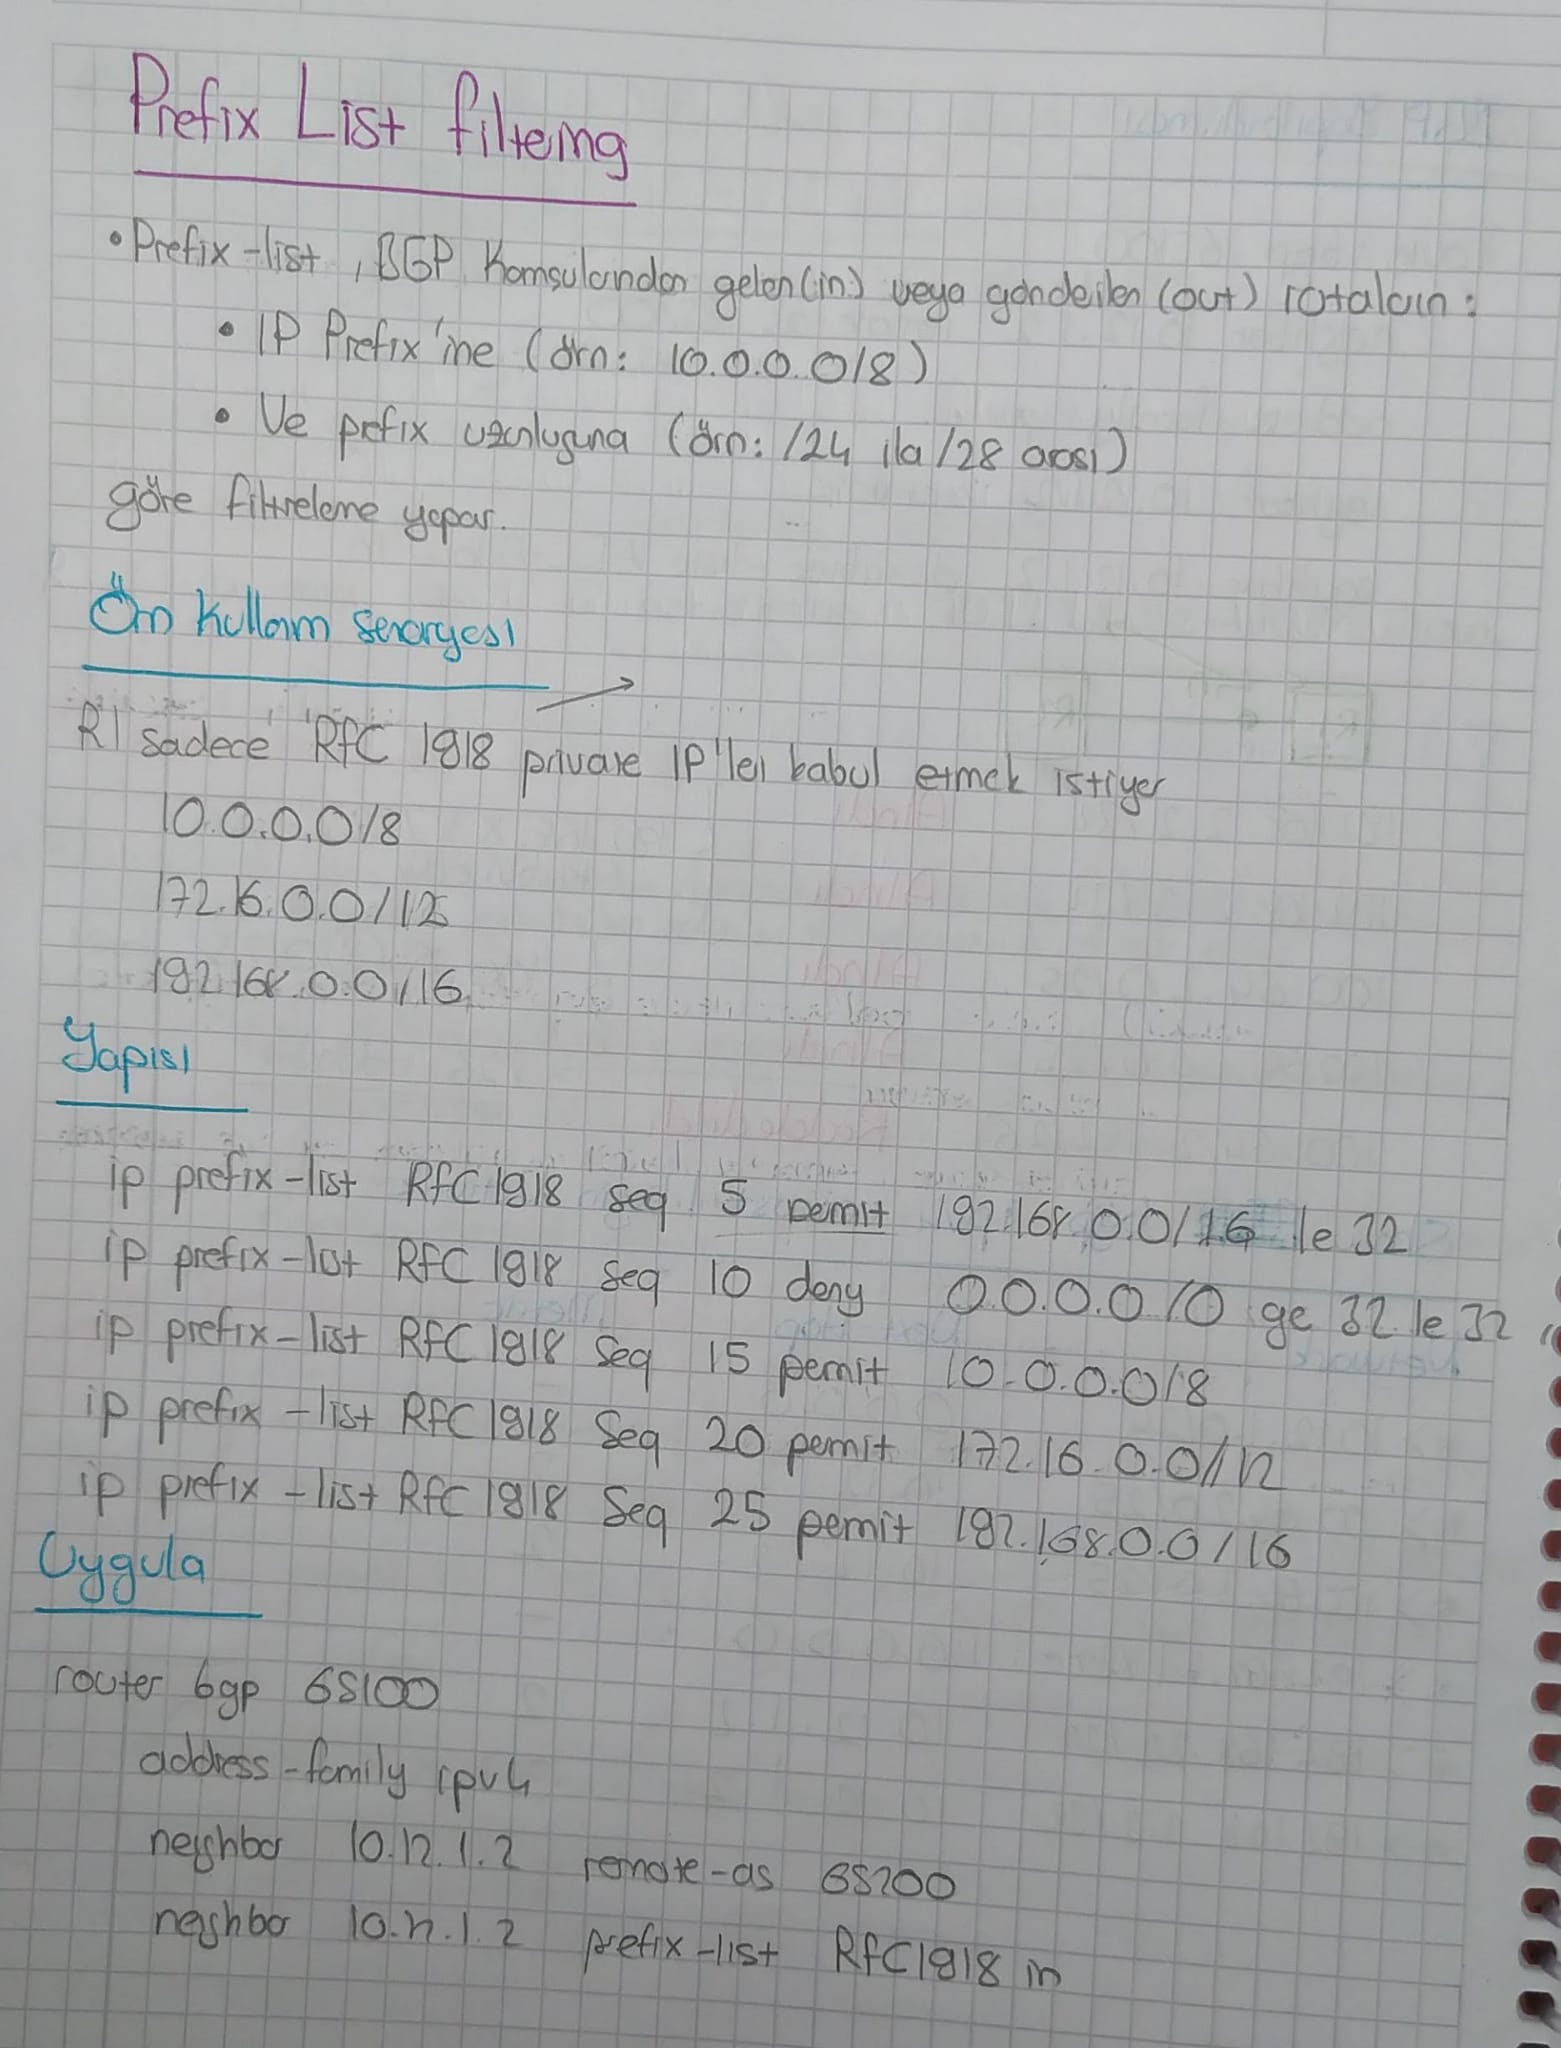 Prefix List filtering
• Prefix-list, BGP Komşularından gelen (in) veya gönderilen (out) rotaların:
• IP Prefix'ine (örn: 10.0.0.0/8)
• Ve prefix uzunluğuna (örn: /24 ila /28 arası)
göre filtreleme yapar.
Örn Kullanım Senaryosı
R1 sadece RFC 1918 private IP'leri kabul etmek istiyor
10.0.0.0/8
172.16.0.0/12
192.168.0.0/16
Yapısı
ip prefix-list RFC1918 seq 5 permit 192.168.0.0/16 le 32
ip prefix-list RFC1918 seq 10 deny 0.0.0.0/0 ge 32 le 32
ip prefix-list RFC1918 seq 15 permit 10.0.0.0/8
ip prefix-list RFC1918 seq 20 permit 172.16.0.0/12
ip prefix-list RFC1918 seq 25 permit 192.168.0.0/16
Uygula
router bgp 65100
address-family ipv4
neighbor 10.12.1.2 remote-as 65200
neighbor 10.12.1.2 prefix-list RFC1918 in